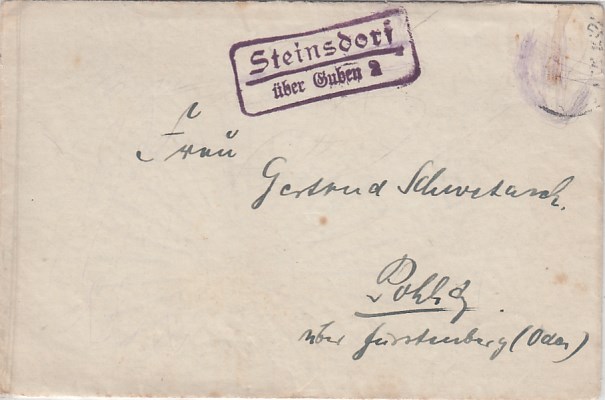 Steinsdorf
über Guben 2
Frau
Gertrud Schwetasch.
Pohlitz
über Fürstenberg (Oder)